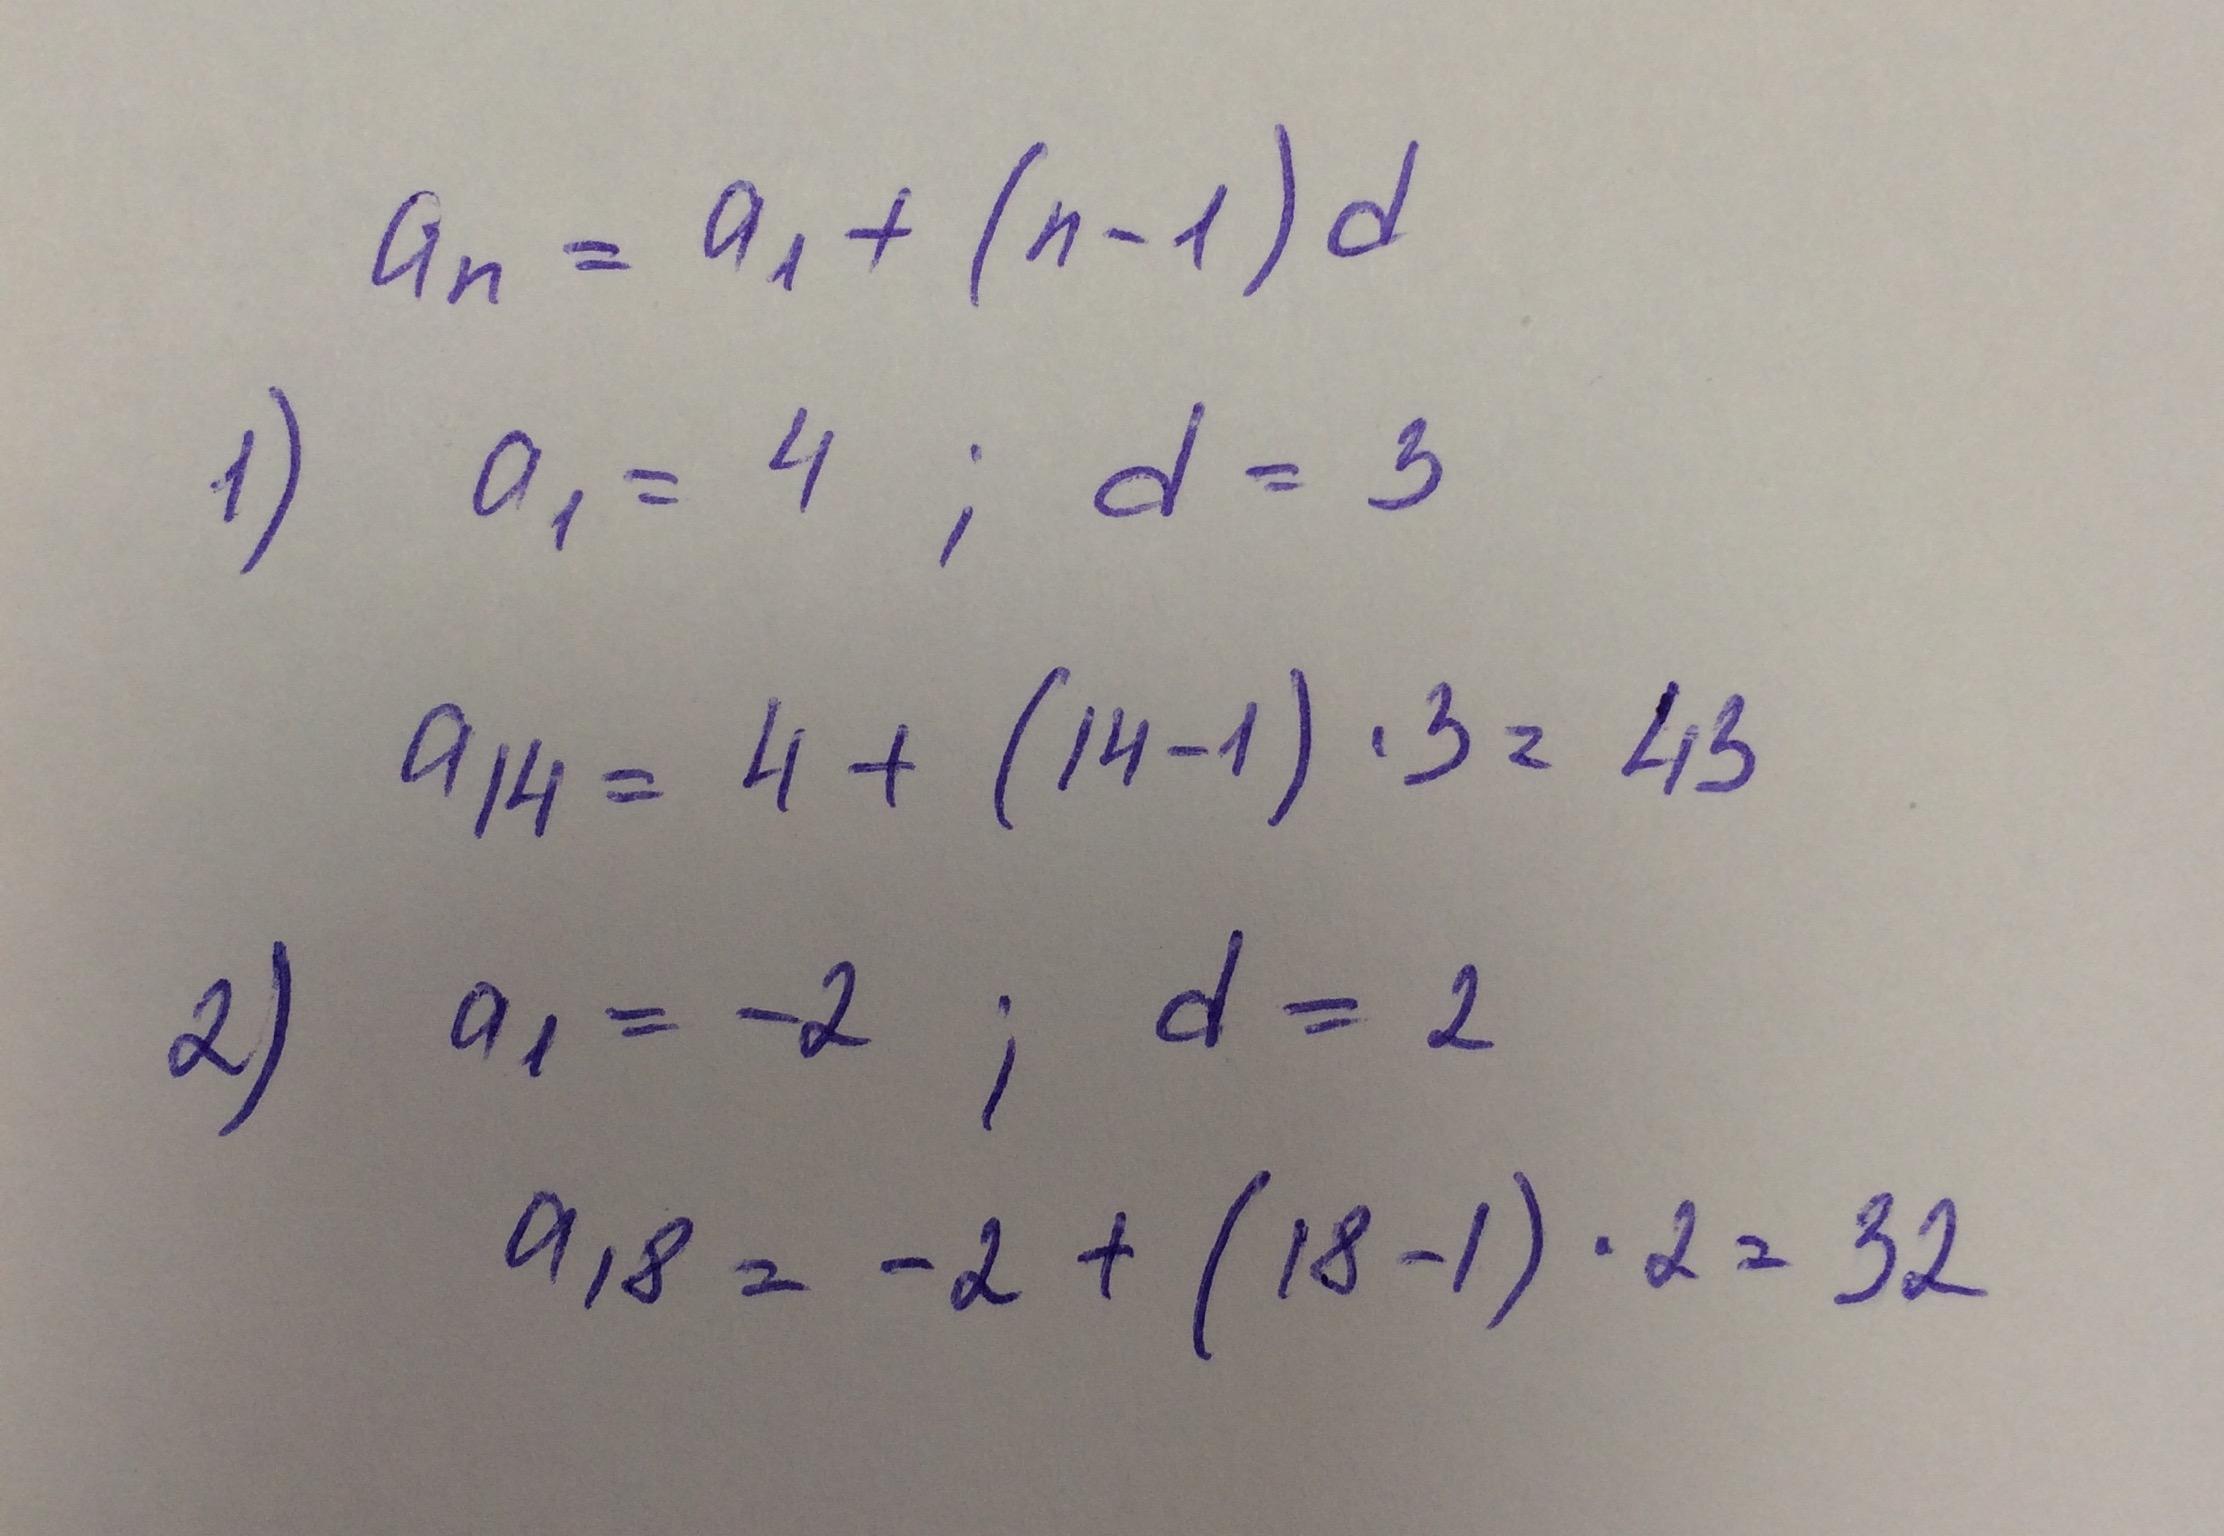 aₙ = a₁ + (n-1)d
1) a₁ = 4 ; d = 3
a₁₄ = 4 + (14-1)·3 = 43
2) a₁ = -2 ; d = 2
a₁₈ = -2 + (18-1)·2 = 32